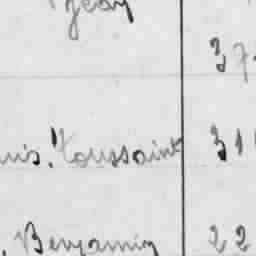 Jean
37
uis. Toussaint 311
, Benjamin 22